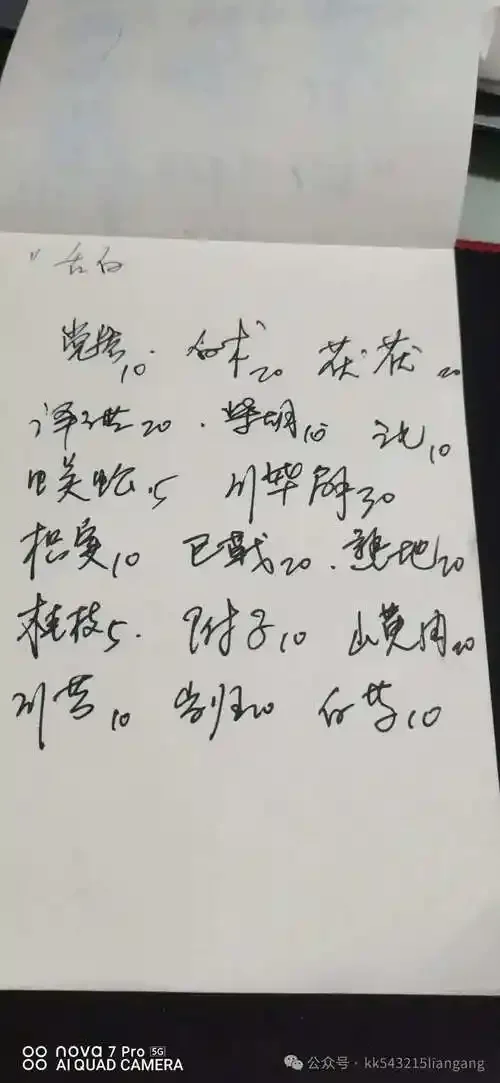 舌白
党参10. 白术20 茯苓20
泽泻20. 柴胡10 10
吴 5 川萆薢30
枳实10 巴戟20. 熟地20
桂枝5. 附子10 山萸肉20
川芎10 当归20 白芍10
nova 7 Pro 5G
AI QUAD CAMERA
公众号·kk543215liangang